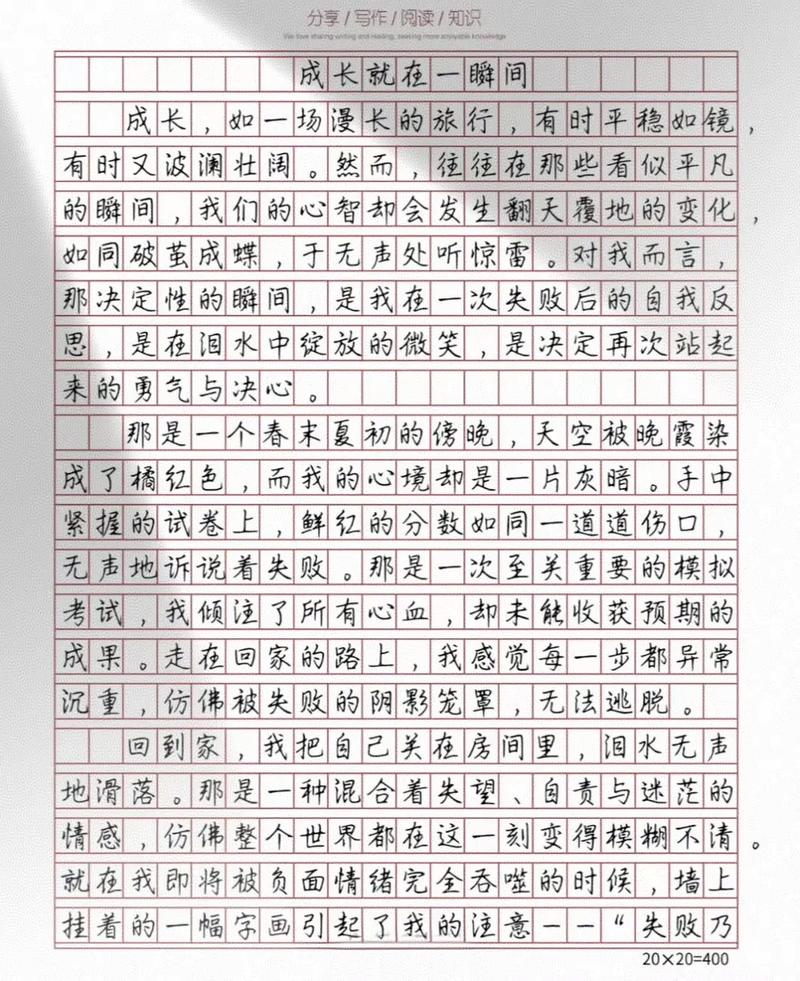 分享 / 写作 / 阅读 / 知识
We love sharing writing and reading, seeking more enjoyable knowledge
成长就在一瞬间
成长，如一场漫长的旅行，有时平稳如镜，
有时又波澜壮阔。然而，往往在那些看似平凡
的瞬间，我们的心智却会发生翻天覆地的变化，
如同破茧成蝶，于无声处听惊雷。对我而言，
那决定性的瞬间，是我在一次失败后的自我反
思，是在泪水中绽放的微笑，是决定再次站起
来的勇气与决心。
那是一个春末夏初的傍晚，天空被晚霞染
成了橘红色，而我的心境却是一片灰暗。手中
紧握的试卷上，鲜红的分数如同一道道伤口，
无声地诉说着失败。那是一次至关重要的模拟
考试，我倾注了所有心血，却未能收获预期的
成果。走在回家的路上，我感觉每一步都异常
沉重，仿佛被失败的阴影笼罩，无法逃脱。
回到家，我把自己关在房间里，泪水无声
地滑落。那是一种混合着失望、自责与迷茫的
情感，仿佛整个世界都在这一刻变得模糊不清。
就在我即将被负面情绪完全吞噬的时候，墙上
挂着的一幅字画引起了我的注意——“失败乃
20×20=400